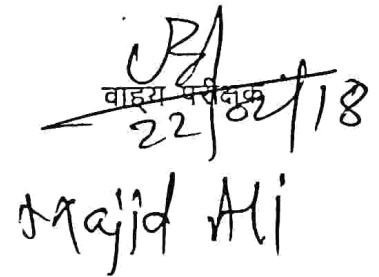 वाह्य परीक्षक
22/02/18
Majid Ali